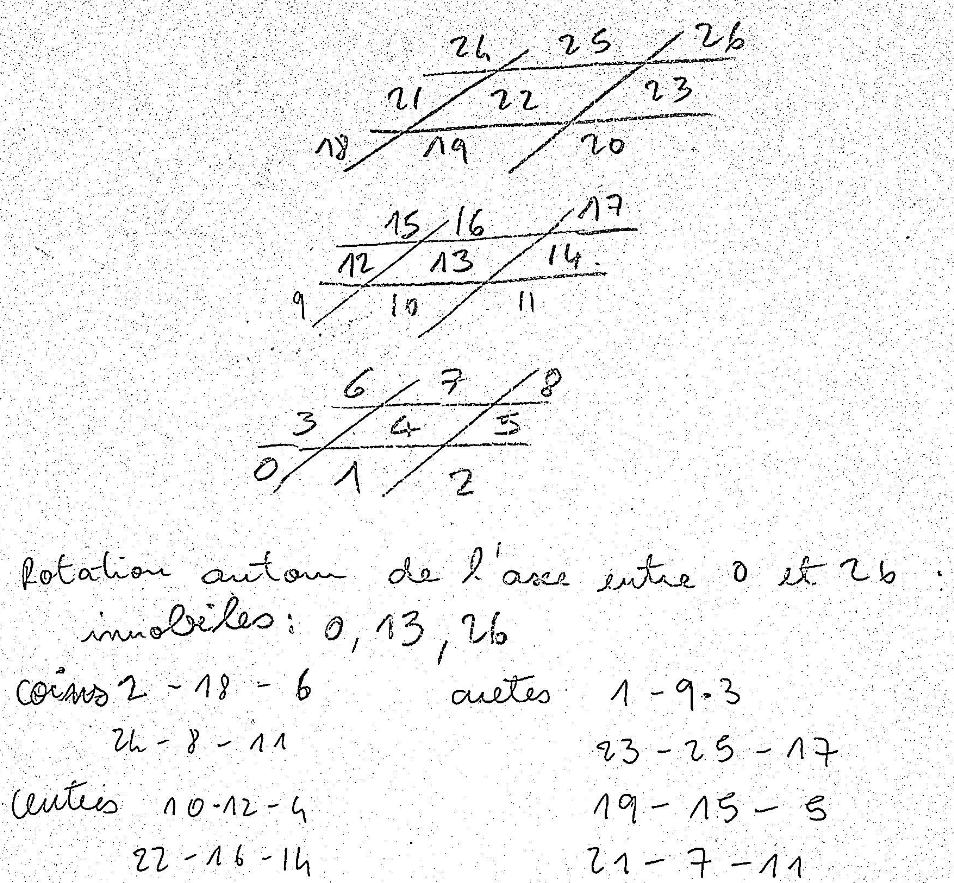 24 25 26
21 22 23
18 19 20
15 16 17
12 13 14.
9 10 11
6 7 8
3 4 5
0 1 2
Rotation autour de l'axe entre 0 et 26.
immobiles: 0, 13, 26
coins 2 - 18 - 6
24 - 8 - 11
centres 10 - 12 - 4
22 - 16 - 14
aretes 1 - 9 - 3
23 - 25 - 17
19 - 15 - 5
21 - 7 - 11